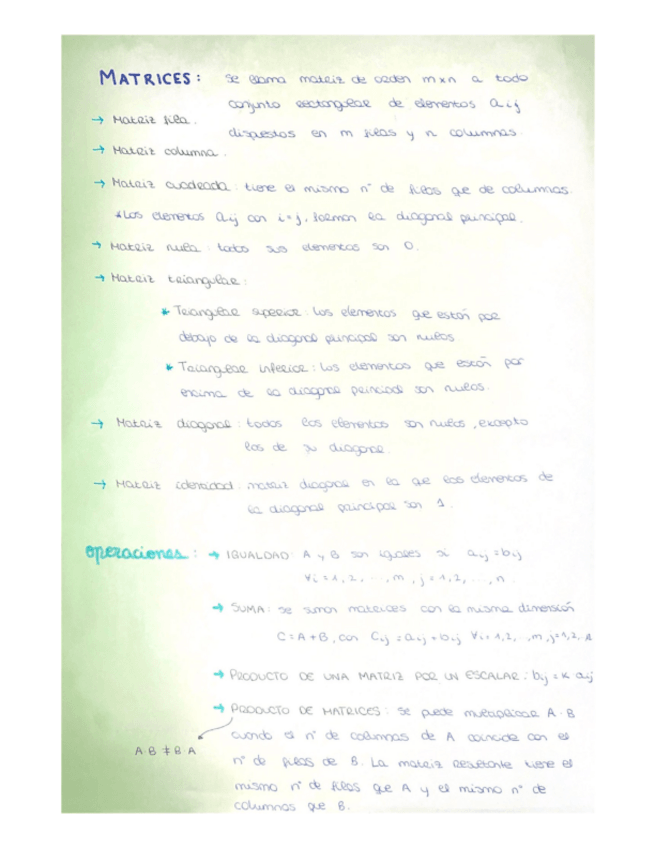 MATRICES: se llama matriz de orden m x n a todo
conjunto rectangular de elementos aij
dispuestos en m filas y n columnas.
→ Matriz fila.
→ Matriz columna.
→ Matriz cuadrada: tiene el mismo nº de filas que de columnas.
*Los elementos aij con i=j, forman la diagonal principal.
→ Matriz nula: todos sus elementos son 0.
→ Matriz triangular:
* Triangular superior: los elementos que están por
debajo de la diagonal principal son nulos
* Triangular inferior: los elementos que están por
encima de la diagonal principal son nulos.
→ Matriz diagonal: todos los elementos son nulos, excepto
los de su diagonal.
→ Matriz identidad: matriz diagonal en la que los elementos de
la diagonal principal son 1.
operaciones: → IGUALDAD: A y B son iguales si aij = bij
∀i = 1, 2, ..., m, j = 1, 2, ..., n.
→ SUMA: se suman matrices con la misma dimensión
C = A + B, con Cij = aij + bij ∀i = 1, 2, ..., m, j = 1, 2, ..
→ PRODUCTO DE UNA MATRIZ POR UN ESCALAR: bij = k aij
→ PRODUCTO DE MATRICES: se puede multiplicar A · B
cuando el nº de columnas de A coincide con el
A·B ≠ B·A
nº de filas de B. La matriz resultante tiene el
mismo nº de filas que A y el mismo nº de
columnas que B.